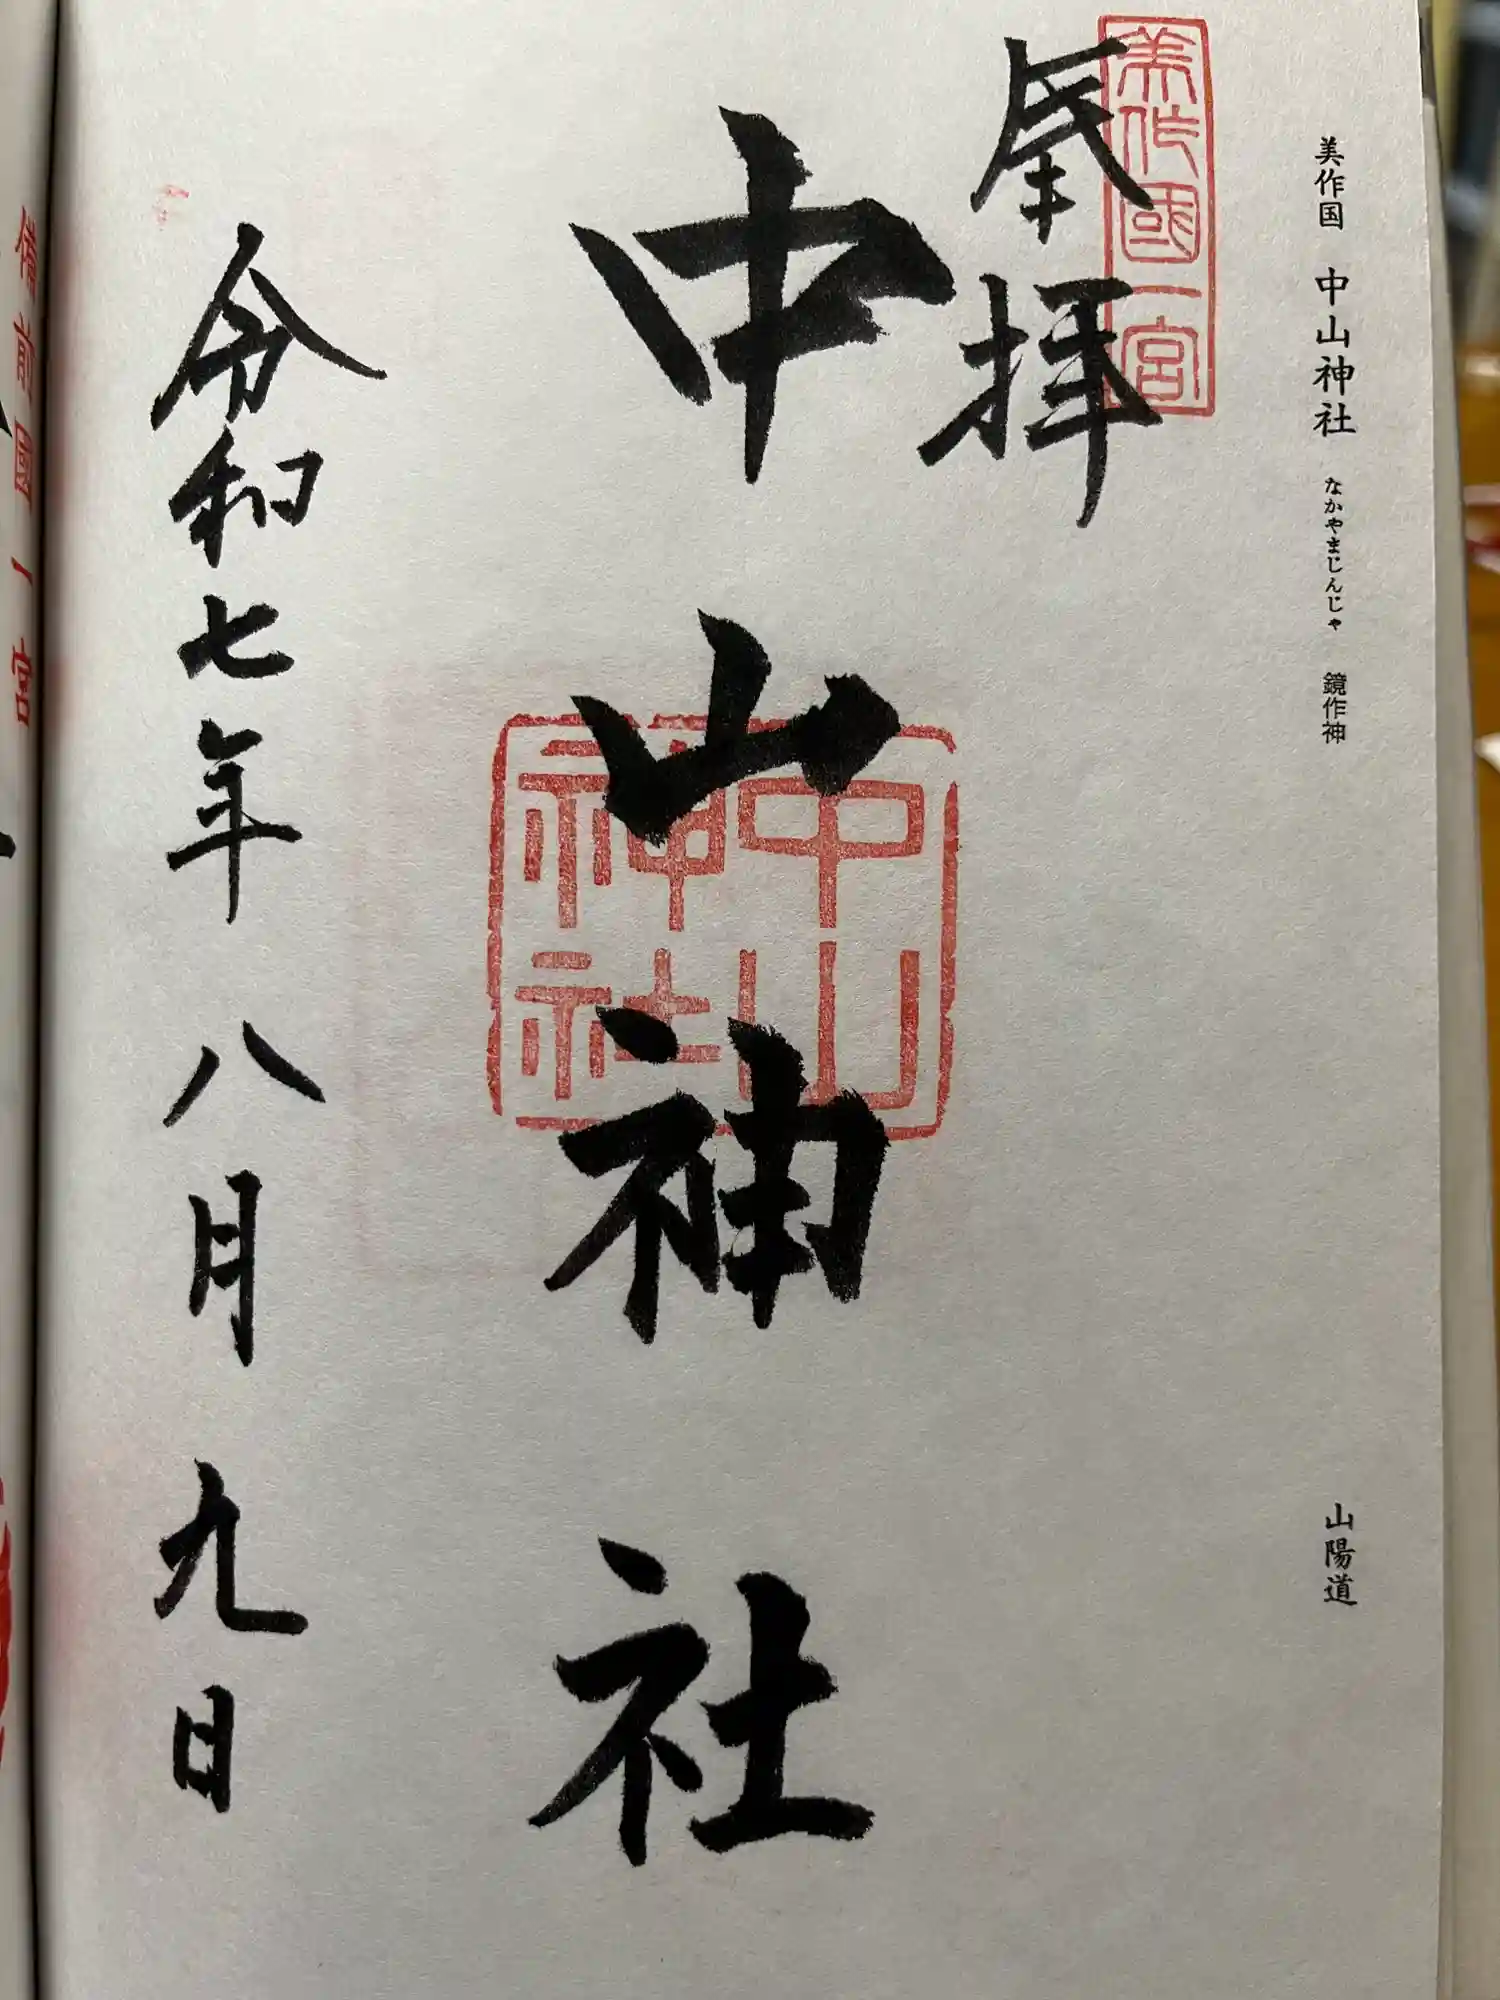 美作国 中山神社 なかやまじんじゃ 鏡作神 山陽道
美作國一宮
奉拝
中山神社
中山神社
令和七年八月九日
備前國一宮